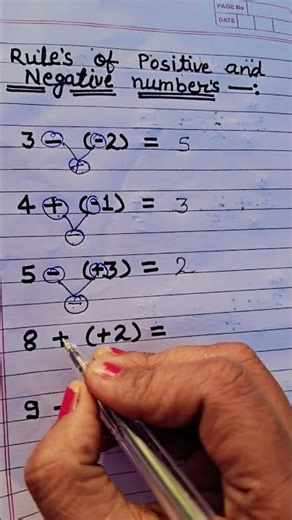 PAGE No
DATE
Rule's of Positive and
Negative number's —:
3 − (-2) = 5
+
4 + (-1) = 3
−
5 − (+3) = 2
−
8 + (+2) =
9 -